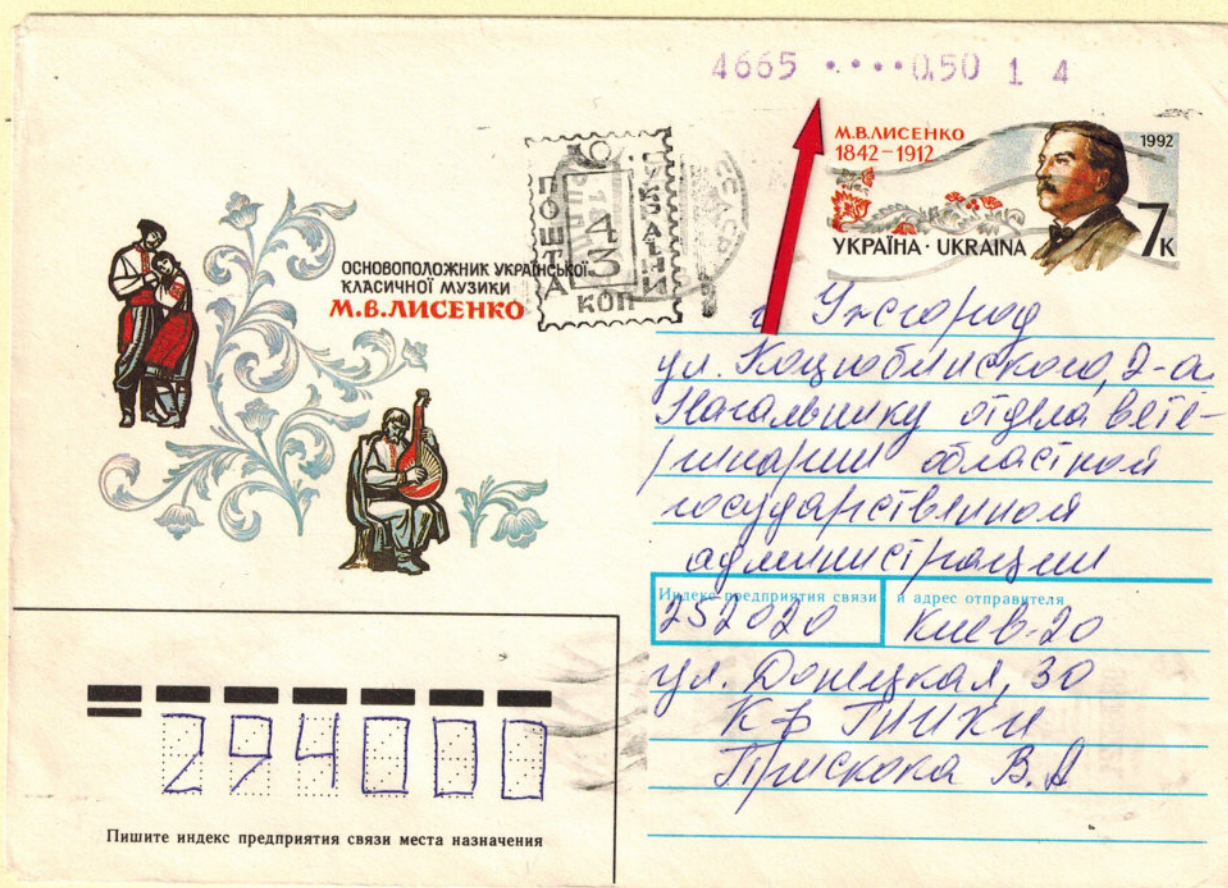 4665 ····0.50 1 4
М.В.ЛИСЕНКО
1842–1912
1992
7к
УКРАЇНА · UKRAINA
ПОШТА
УКРАЇНИ
43
КОП
ОСНОВОПОЛОЖНИК УКРАЇНСЬКОЇ
КЛАСИЧНОЇ МУЗИКИ
М.В.ЛИСЕНКО
г. Ужгород
ул. Коцюбинского, 2-а
Начальнику отдела вете-
ринарии областной
государственной
администрации
Индекс предприятия связи и адрес отправителя
252020 Киев-20
ул. Донецкая, 30
Прискока В.А
294000
Пишите индекс предприятия связи места назначения